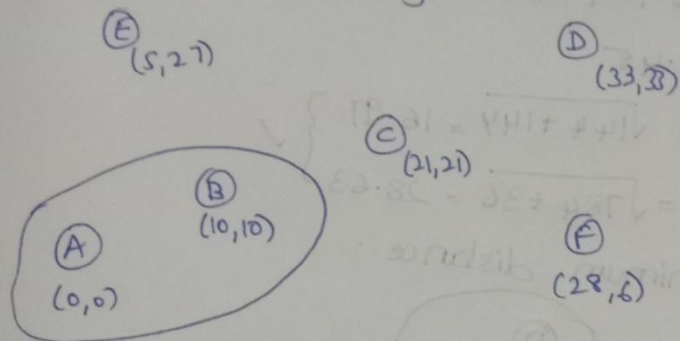 E
(5,27)
D
(33,33)
C
(21,21)
B
(10,10)
A
(0,0)
F
(28,6)